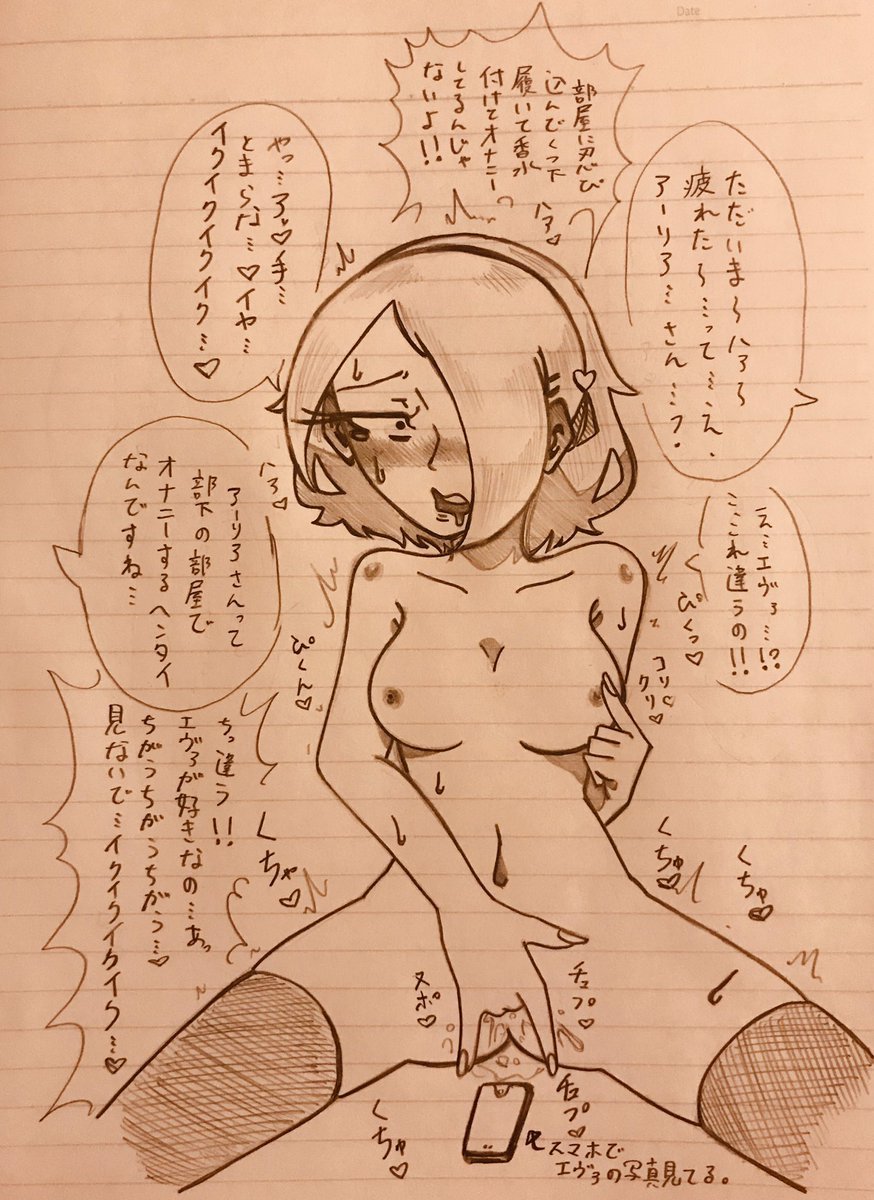 Date
ただいま〜ハァ〜
疲れた〜…って…え、
アーリア…さん…?
部屋に忍び
込んでくつ下
履いて香水
付けてオナニー
してるんじゃ
ないよ!!
ハァ♡
え…エヴァ…!?
こ、これ違うの!!
やっ…アッ♡手…
とまらな…♡イヤ…
イクイクイクイク…♡
ハァ♡
アーリアさんって
部下の部屋で
オナニーするヘンタイ
なんですね…
ちっ違う!!
エヴァが好きなの…あっ
ちがうちがうちがう…♡
見ないで…イクイクイクイク…♡
ぴくっ♡
コリ♡
クリ♡
ぴくん♡
くちゃ♡
くちゅ♡
くちゃ♡
ヌポ♡
チュプ♡
チュプ♡
くちゃ♡
スマホで
エヴァの写真見てる。